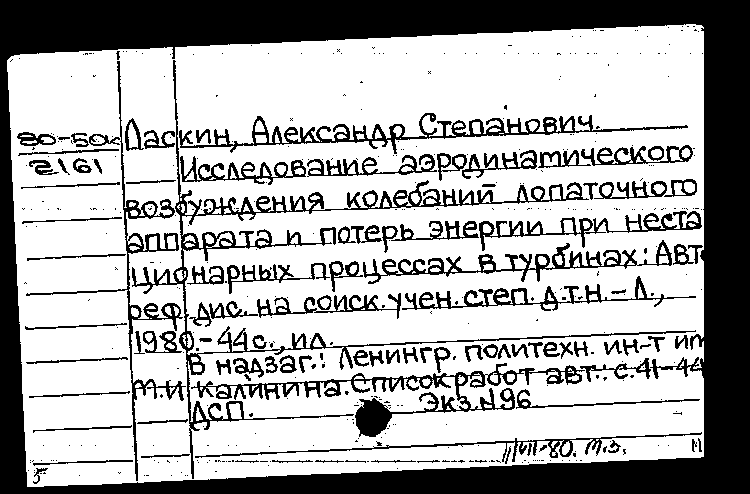 80-50к Ласкин, Александр Степанович.
2161 Исследование аэродинатического
возбуждения колебаний лопаточного
аппарата и потерь энергии при неста
ционарных процессах в турбинах: Авт
реф. дис. на соиск. учен. степ. д.т.н. – Л.,
1980. – 44 с., ил.
В надзаг.: Ленингр. политехн. ин-т им
М.И Калинина. Список работ авт.: с. 41-44
ДСП. Экз. №96
VII-80. М.З.
5